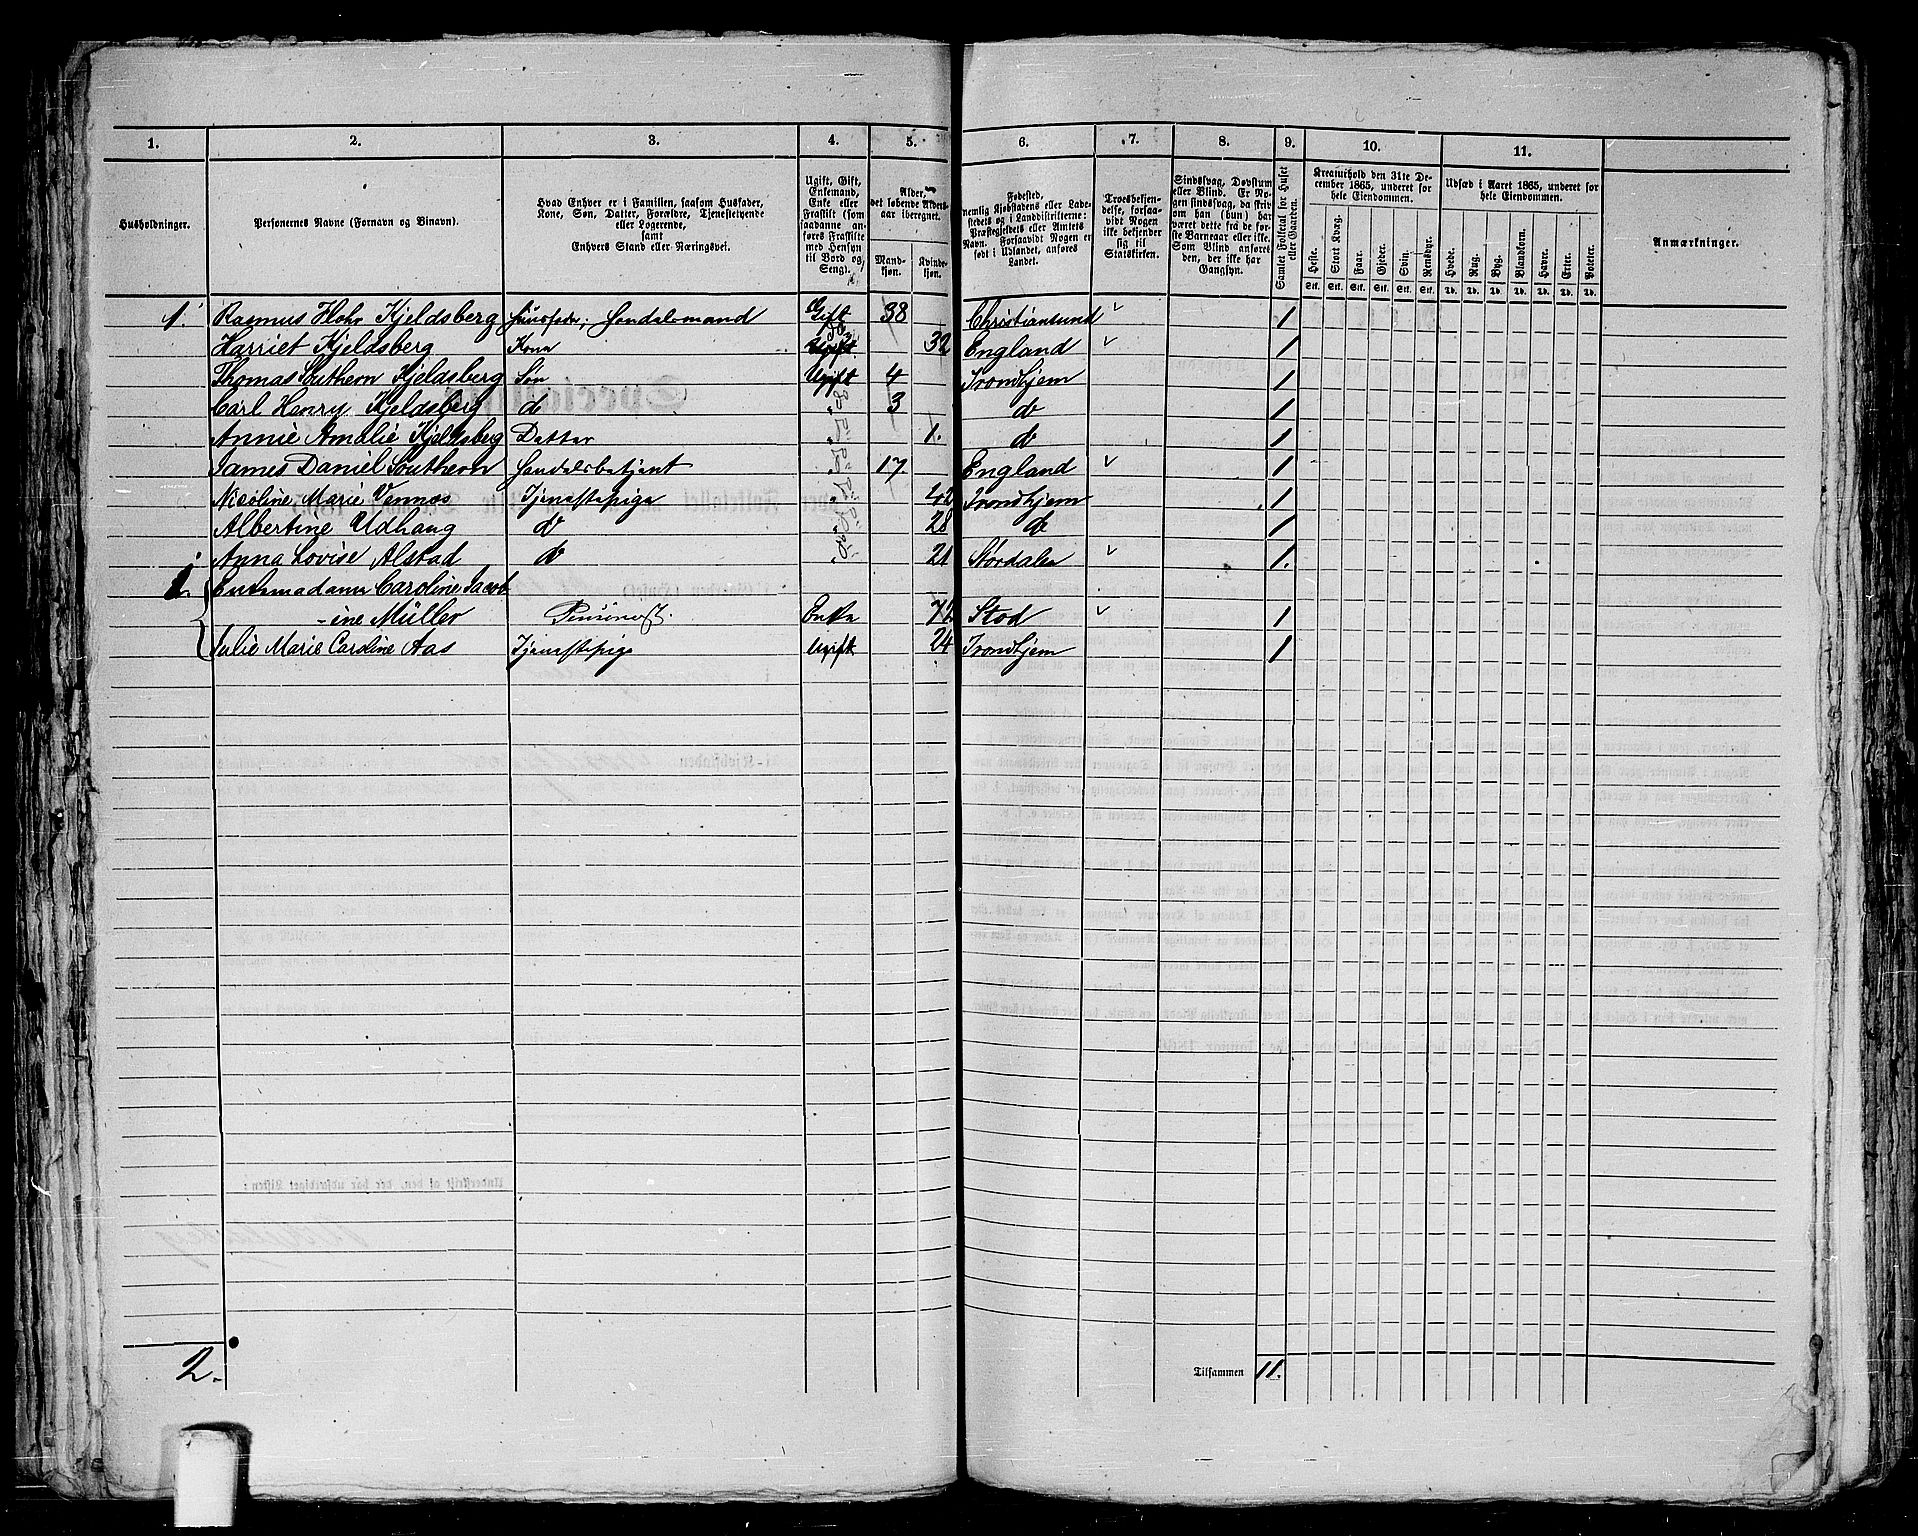 1. 2. 3. 4. 5. 6. 7. 8. 9. 10. 11.
Husholdninger.
Personernes Navne (Fornavn og Binavn).
Hvad Enhver er i Familien, saasom Husfader,
Kone, Søn, Datter, Forældre, Tjenestetyende
eller Logerende,
samt
Enhvers Stand eller Næringsvei.
Ugift, Gift,
Enkemand,
Enke eller
Fraskilt (som
saadanne an-
føres Fraskilte
med Hensyn
til Bord og
Seng).
Alder,
det løbende Alders-
aar iberegnet.
Mand-
kjøn.
Kvinde-
kjøn.
Fødested,
nemlig Kjøbstadens eller Lade-
stedets og i Landdistrikterne:
Præstegjeldets eller Amtets
Navn. Forsaavidt Nogen er
født i Udlandet, anføres
Landet.
Troesbekjen-
delse, forsaa-
vidt Nogen
ikke bekjender
sig til
Statskirken.
Sindssvag, Døvstum
eller Blind. Er No-
gen sindssvag, da skriv
om han (hun) har
været dette fra de før-
ste Barneaar eller ikke.
Som Blind anføres
den, der ikke har
Gangsyn.
Samlet Folketal for Huset
eller Gaarden.
Kreaturhold den 31te De-
cember 1865, underet for
hele Eiendommen.
Heste. Stort Kvæg. Faar. Gjeder. Svin. Rensdyr.
Stk. Stk. Stk. Stk. Stk. Stk.
Udsæd i Aaret 1865, underet for
hele Eiendommen.
Hvede. Rug. Byg. Blandkorn. Havre. Erter. Poteter.
Td. Td. Td. Td. Td. Td. Td.
Anmærkninger.
1. Rasmus Flohr Kjeldsberg Husfader, Handelsmand Gift 38 Christiansund 1
Harriet Kjeldsberg Kone 32 England 1
Thomas Southern Kjeldsberg Søn Ugift 4 Trondhjem 1
Carl Henry Kjeldsberg do 3 do 1
Annie Amalie Kjeldsberg Datter 1. do 1
James Daniel Southern Handelsbetjent 17 England 1
Nicoline Marie Vennes Tjenestepige 42 Trondhjem 1
Albertine Udhaug do 28 do 1
Anna Lovise Alstad do 21 Stördalen 1.
Enkemadam Caroline Jacob
-ine Müller Pensionist. Enke 72 Stod 1
Julie Marie Caroline Aas Tjenestepige Ugift 24 Trondhjem 1
2.
Tilsammen 11.